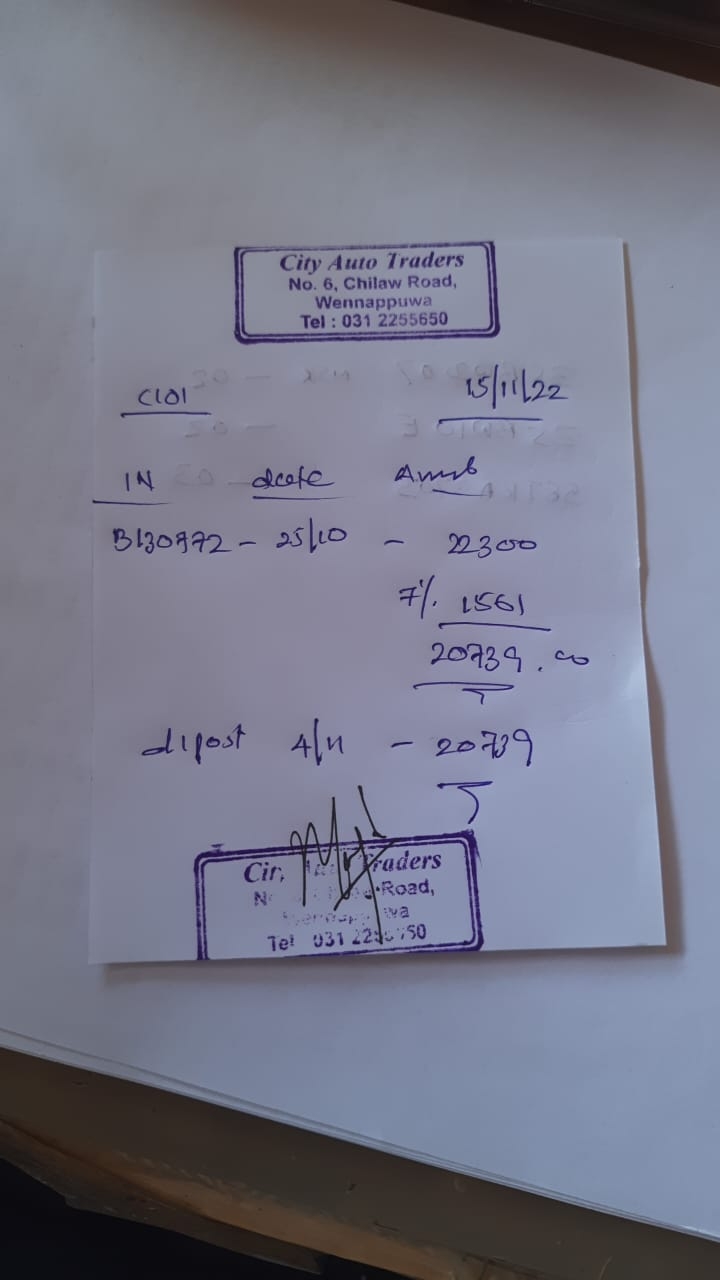 City Auto Traders
No. 6, Chilaw Road,
Wennappuwa
Tel : 031 2255650
C101 15/11/22
IN date Amt
B130772 - 25/10 - 22300
7% 1561
20739.00
dipost 4/11 - 20739
Traders
Road,
Tel 031